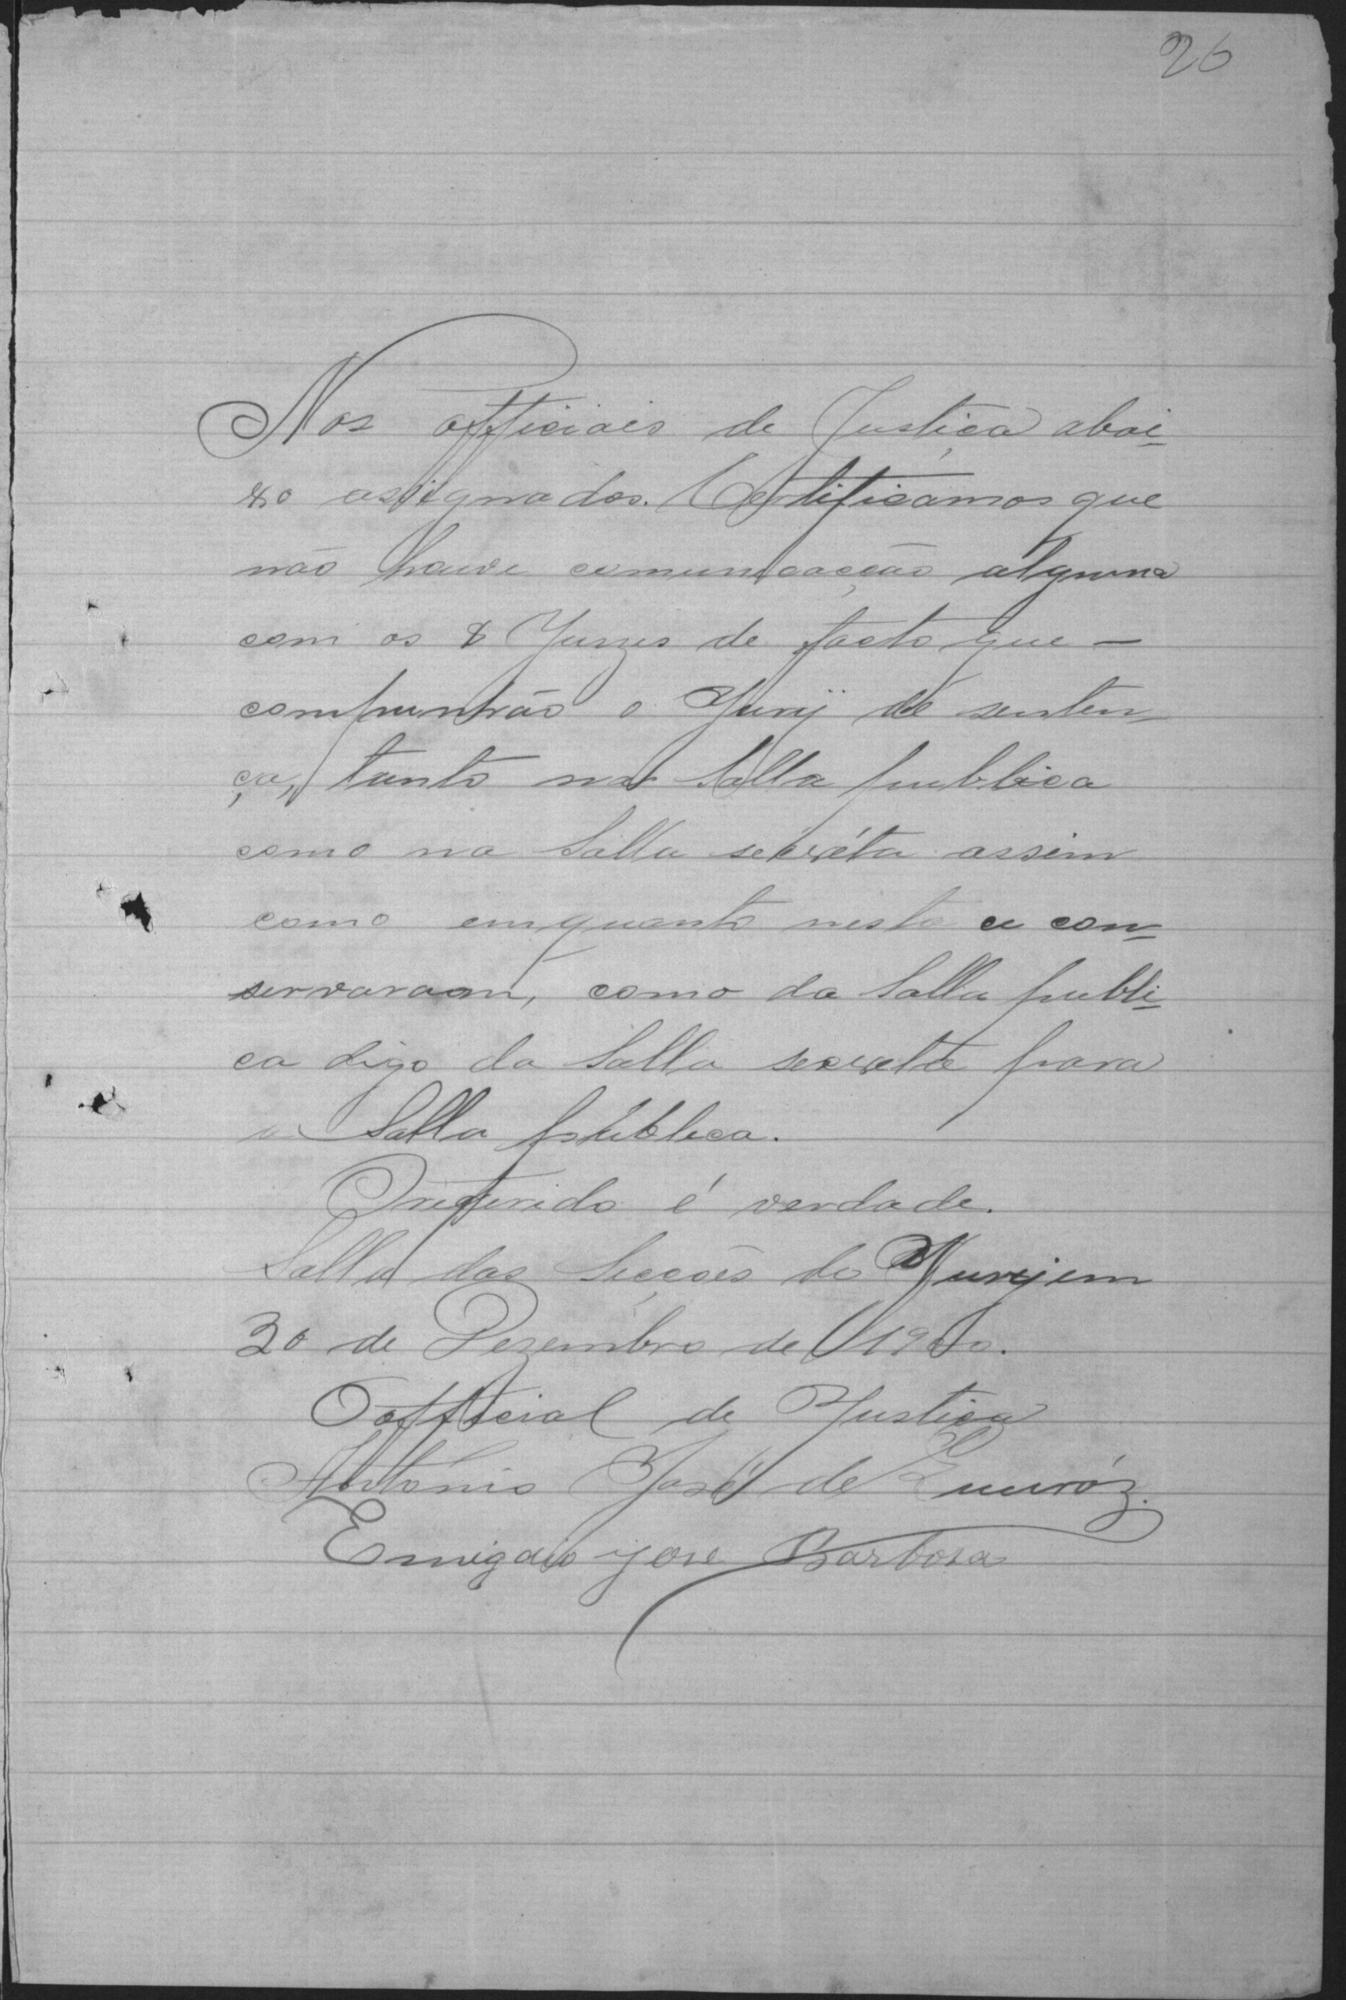 26
Nos officiaes de Justiça abai-
xo assignados. Certificamos que
não houve comunicacção alguma
com os 8 Juizes de facto que -
compunhão o Jury de senten-
ça, tanto na Salla publica
como na Salla secréta assim
como emquanto nesta se con-
servaraom, como da Salla publi-
ca digo da Salla secreta para
a Salla pública.
O referido é verdade.
Salla das Secções do Jury em
30 de Dezembro de 1900.
O official de Justiça
Antônio José de Queiróz.
Emigdio José Barbosa